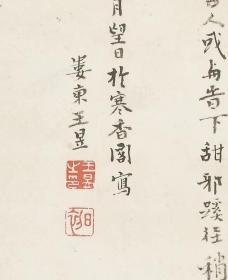 人或舟昔下甜邪蹊径稍
月望日於寒香閣寫
婁東王昱
王昱之印